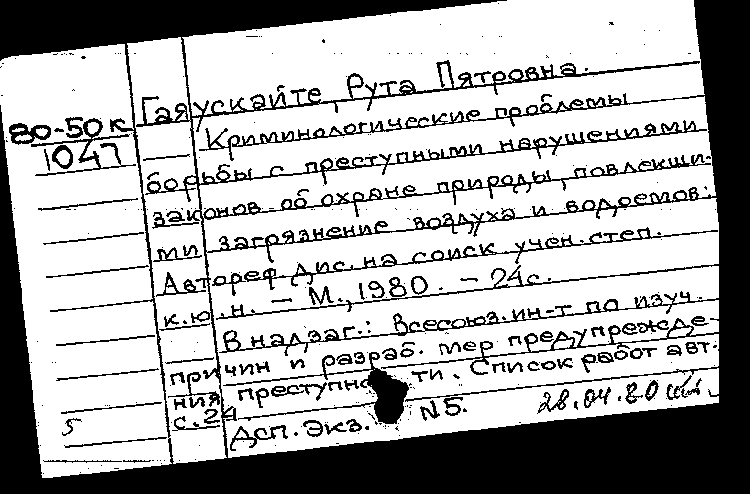 Гаяускайте, Рута Пятровна.
80-50к
1047
Криминологические проблемы
борьбы с преступными нарушениями
законов об охране природы, повлекши-
ми загрязнение воздуха и водоемов:
Автореф. дис. на соиск. учен. степ.
к.ю.н. – М., 1980. – 24с.
В надзаг.: Всесоюз. ин-т по изуч.
причин и разраб. мер предупрежде-
ния преступно ти. Список работ авт.
с. 24
ДСП. Экз. N5.
28.04.80
5